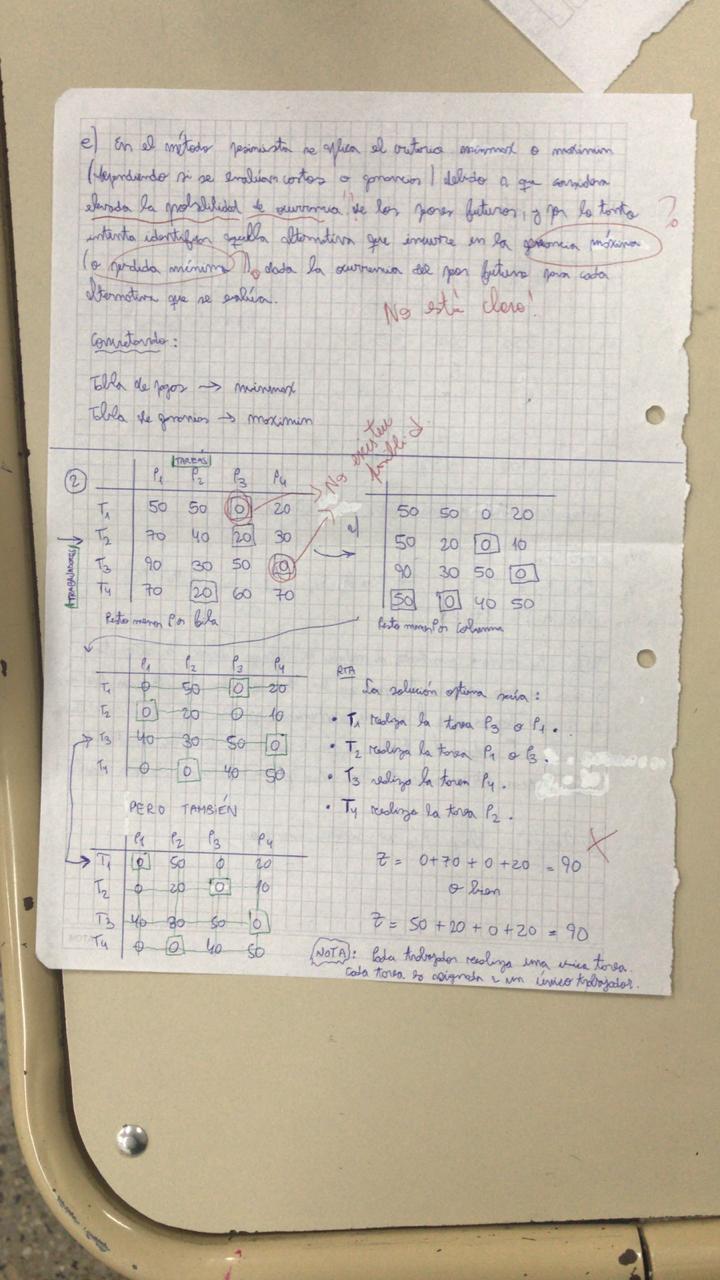 e) En el método pesimista se aplica el criterio minmax o maximin
(dependiendo si se evalúan costos o ganancias) debido a que considera
elevada la probabilidad de ocurrencia de los peores futuros, y por lo tanto
?
intenta identificar aquella alternativa que incurre en la ganancia máxima
(o perdida mínima), dada la ocurrencia del peor futuro para cada
alternativa que se evalúa.
No está claro!
Concretando:
Tabla de pagos → minmax
Tabla de ganancias → maximin
No existen
2
TAREAS
P1 P2 P3 P4
T1 50 50 0 20
T2 70 40 20 30
T3 90 30 50
T4 70 20 60 70
TRABAJADORES
Resto menor por fila
50 50 0 20
50 20 0 10
90 30 50 0
50 0 40 50
Resto menor por columna
P1 P2 P3 P4
T1 0 50 0 20
T2 0 20 0 10
T3 40 30 50 0
T4 0 0 40 50
PERO TAMBIÉN
P1 P2 P3 P4
T1 0 50 0 20
T2 0 20 0 10
T3 40 30 50 0
T4 0 0 40 50
RTA
La solución optima sería:
• T1 realiza la tarea P3 o P1.
• T2 realiza la tarea P1 o P3.
• T3 realiza la tarea P4.
• T4 realiza la tarea P2.
Z = 0+70+0+20 = 90
o bien
Z = 50+20+0+20 = 90
NOTA: Cada trabajador realiza una única tarea.
Cada tarea es asignada a un único trabajador.